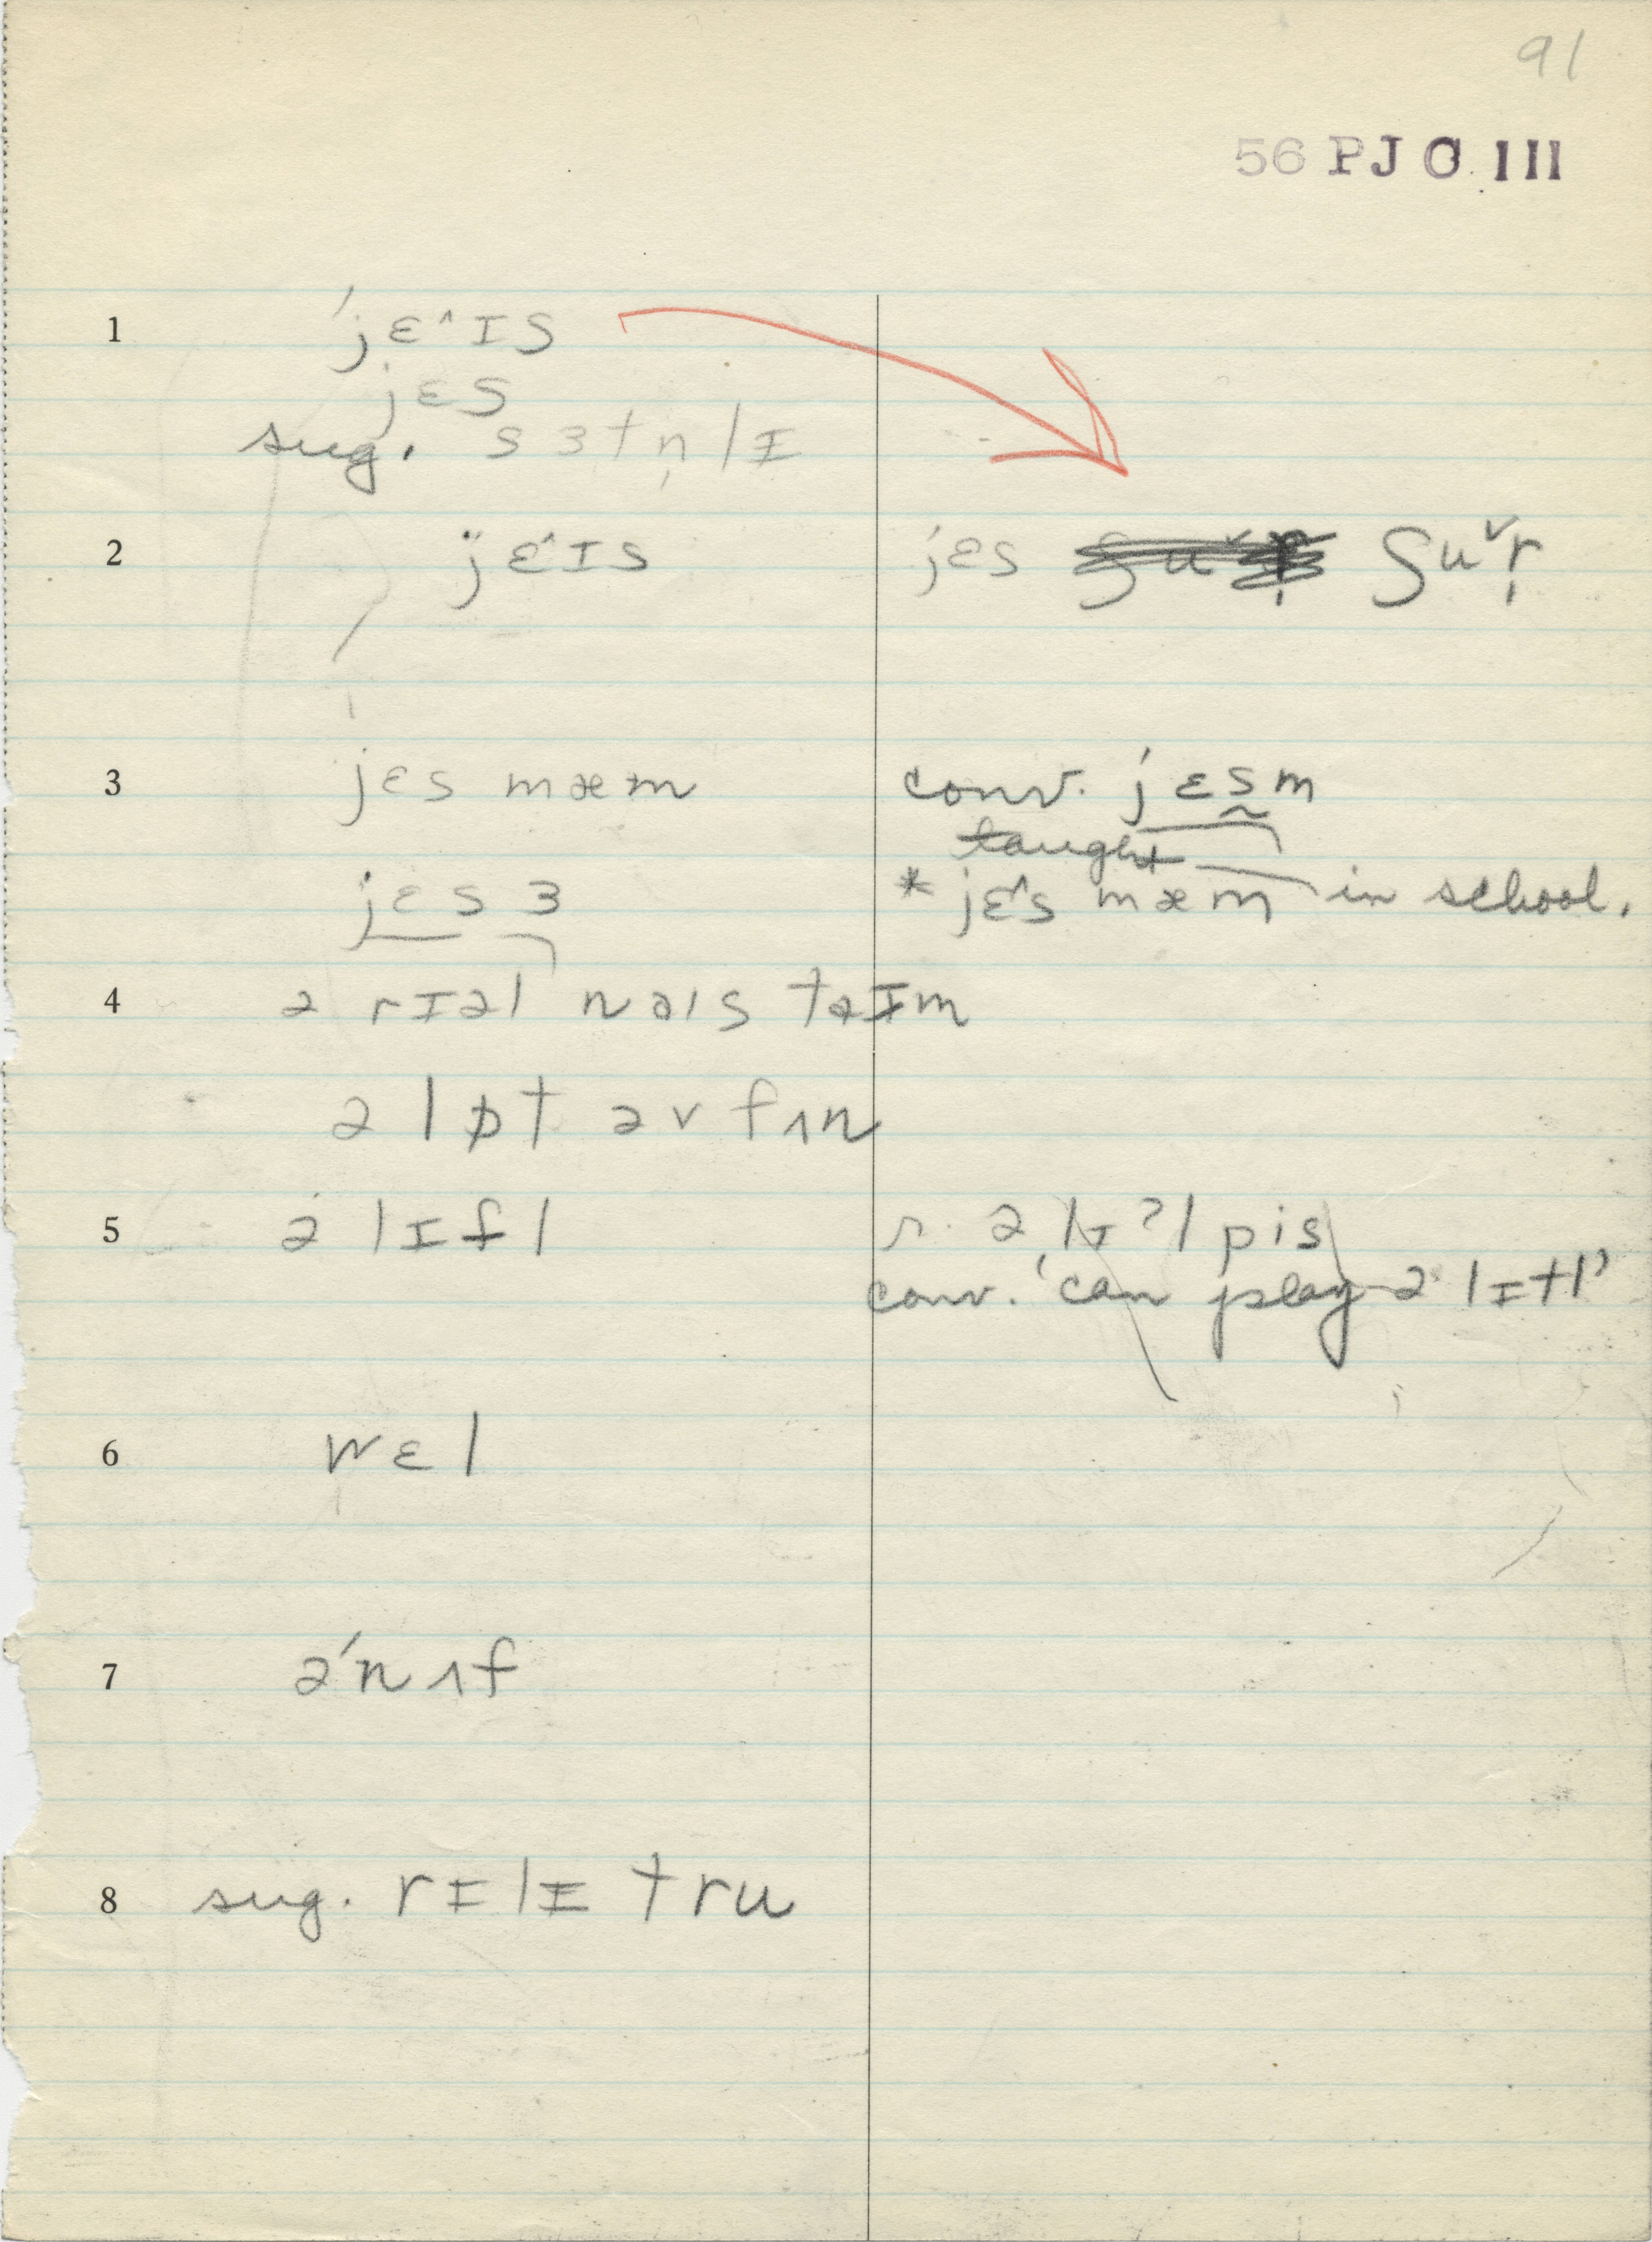 91
56 PJO III
1 ˈjɛ^ɪs
jɛs
sug. sɜtn̩lɪ
2 jɛ^ɪs jɛs ʃuˇr̩
3 jɛs mæm conv. jɛsm̩
taught
jɛs ɜ * jɛ^s mæm in school.
4 ə rɪəl naɪs taɪm
ə lɒt əv fʌn
5 ə lɪtl r. ə lɪʔl pis
conv. 'can play ə lɪtl'
6 wɛl
7 əˈnʌf
8 sug. rɪlɪ tru